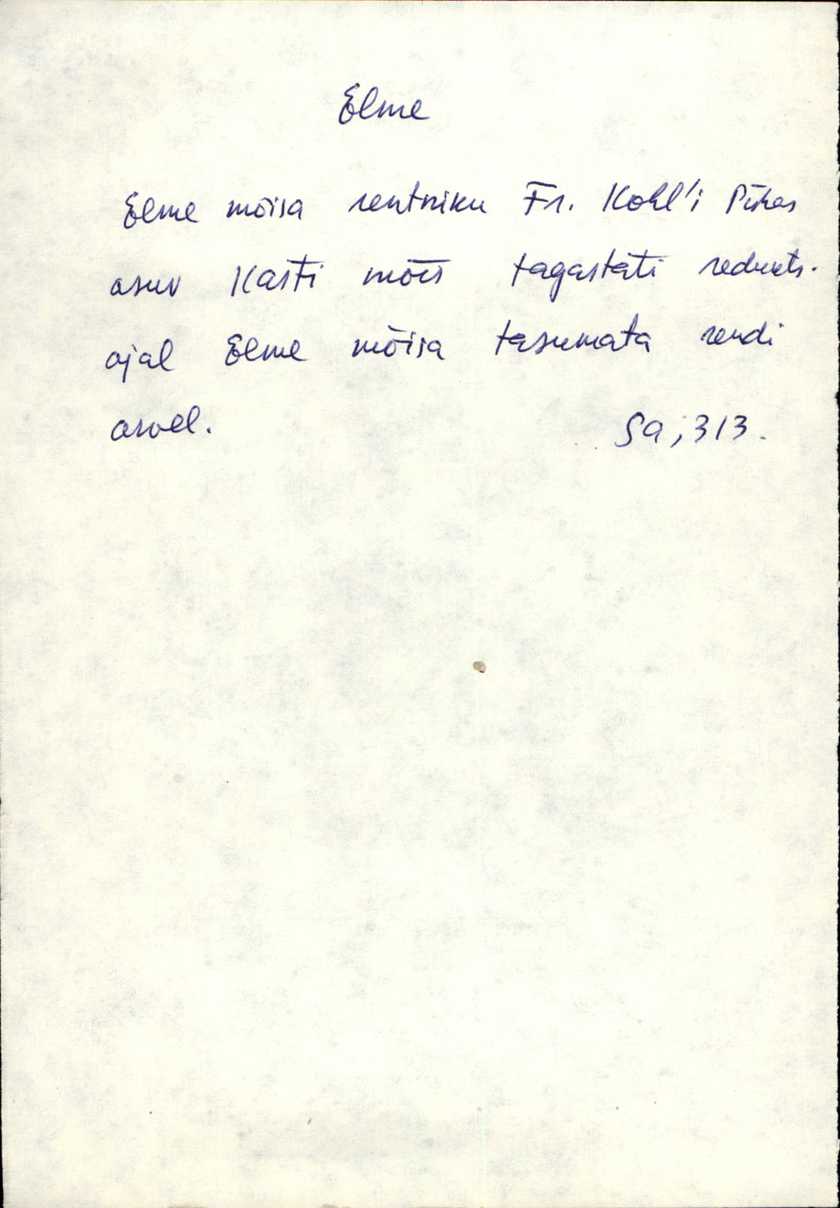 Elme
Elme mõisa rentniku Fr. Kohl'i Pühas
asuv Kasti mõis tagastati redukts.
ajal Elme mõisa tasumata rendi
arvel. Sa, 313.